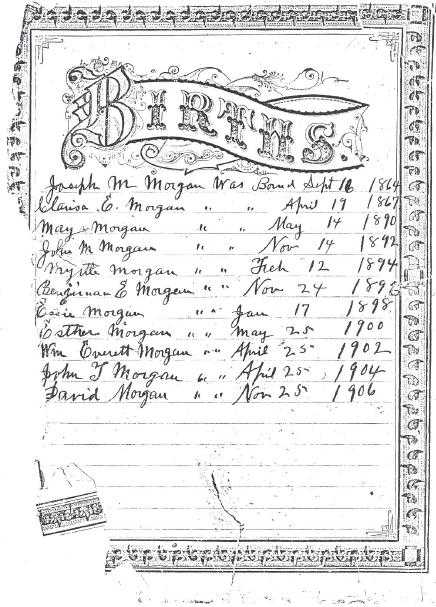 BIRTHS.
Joseph M Morgan Was Bornd Sept 16 1864
Clarisa E. Morgan " " April 19 1867
May Morgan " " May 14 1890
John M Morgan " " Nov 14 1892
Myrtle Morgan " " Feb 12 1894
Benjinman E Morgan " " Nov 24 1895
Essie Morgan " " Jan 17 1898
Esther Morgan " " May 25 1900
Wm Everett Morgan " " April 25 1902
John T Morgan " " April 25, 1904
David Morgan " " Nov 25 1906